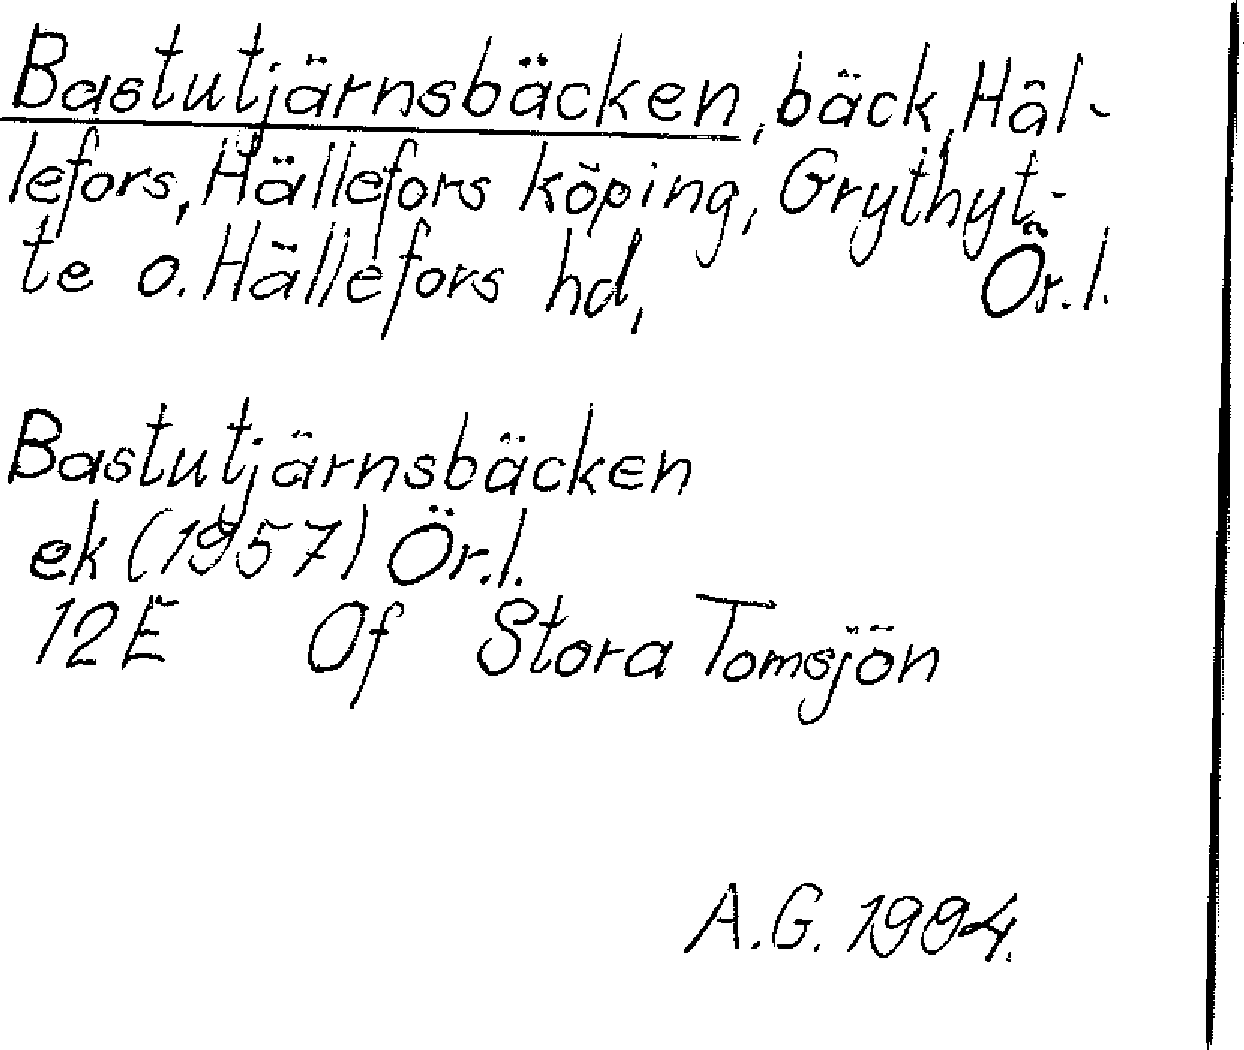 Bastutjärnsbäcken, bäck, Häl-
lefors, Hällefors köping, Grythyt-
te o. Hällefors hd, Ör.l.
Bastutjärnsbäcken
ek (1957) Ör.l.
12E Of Stora Tomsjön
A.G. 1994.